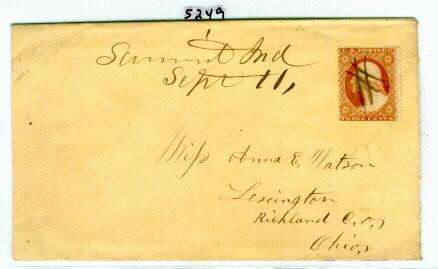 5249
Summit Ind
Sept 11,
U.S. POSTAGE
THREE CENTS
Miss Anna E. Watson
Lexington
Richland Co,
Ohio,